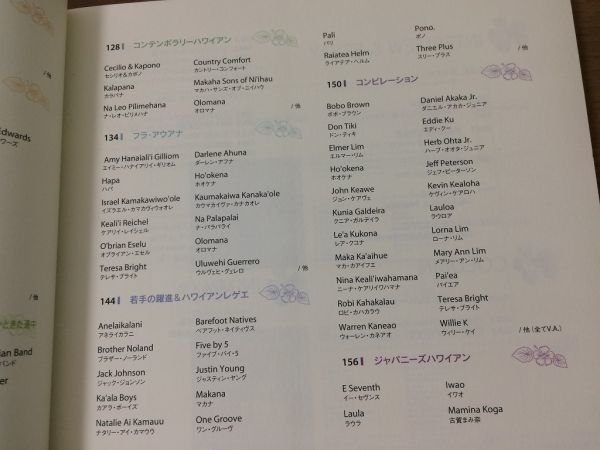 /他
Edwards
ワーズ
/他
ian Band
バンド
128 コンテンポラリーハワイアン
Cecilio & Kapono
セシリオ&カポノ
Country Comfort
カントリー・コンフォート
Kalapana
カラパナ
Makaha Sons of Ni'ihau
マカハ・サンズ・オブ・ニイハウ
Na Leo Pilimehana
ナ・レオ・ピリメハナ
Olomana
オロマナ
/他
134 フラ・アウアナ
Amy Hanaiali'i Gilliom
エイミー・ハナイアリイ・ギリオム
Darlene Ahuna
ダーレン・アフナ
Hapa
ハパ
Ho'okena
ホオケナ
Israel Kamakawiwo'ole
イズラエル・カマカヴィヴォオレ
Kaumakaiwa Kanaka'ole
カウマカイヴァ・カナカオレ
Keali'i Reichel
ケアリイ・レイシェル
Na Palapalai
ナ・パラパライ
O'brian Eselu
オブライアン・エセル
Olomana
オロマナ
Teresa Bright
テレサ・ブライト
Uluwehi Guerrero
ウルヴェヒ・グェレロ
/他
144 若手の躍進&ハワイアンレゲエ
Anelaikalani
アネライカラニ
Barefoot Natives
ベアフット・ネイティヴス
Brother Noland
ブラザー・ノーランド
Five by 5
ファイブ・バイ・5
Jack Johnson
ジャック・ジョンソン
Justin Young
ジャスティン・ヤング
Ka'ala Boys
カアラ・ボーイズ
Makana
マカナ
Natalie Ai Kamauu
ナタリー・アイ・カマウウ
One Groove
ワン・グルーヴ
Pali
パリ
Pono.
ポノ
Raiatea Helm
ライアテア・ヘルム
Three Plus
スリー・プラス
/他
150 コンピレーション
Bobo Brown
ボボ・ブラウン
Daniel Akaka Jr.
ダニエル・アカカ・ジュニア
Don Tiki
ドン・ティキ
Eddie Ku
エディ・クー
Elmer Lim
エルマー・リム
Herb Ohta Jr.
ハーブ・オオタ・ジュニア
Ho'okena
ホオケナ
Jeff Peterson
ジェフ・ピーターソン
John Keawe
ジョン・ケアヴェ
Kevin Kealoha
ケヴィン・ケアロハ
Kunia Galdeira
クニア・ガルデイラ
Lauloa
ラウロア
Le'a Kukona
レア・クコナ
Lorna Lim
ローナ・リム
Maka Ka'aihue
マカ・カアイフエ
Mary Ann Lim
メアリー・アン・リム
Nina Keali'iwahamana
ニーナ・ケアリイワハマナ
Pai'ea
パイエア
Robi Kahakalau
ロビ・カハカラウ
Teresa Bright
テレサ・ブライト
Warren Kaneao
ウォーレン・カネアオ
Willie K
ウィリー・ケイ
/他(全てV.A.)
156 ジャパニーズハワイアン
E Seventh
イー・セヴンス
Iwao
イワオ
Laula
ラウラ
Mamina Koga
古賀まみ奈